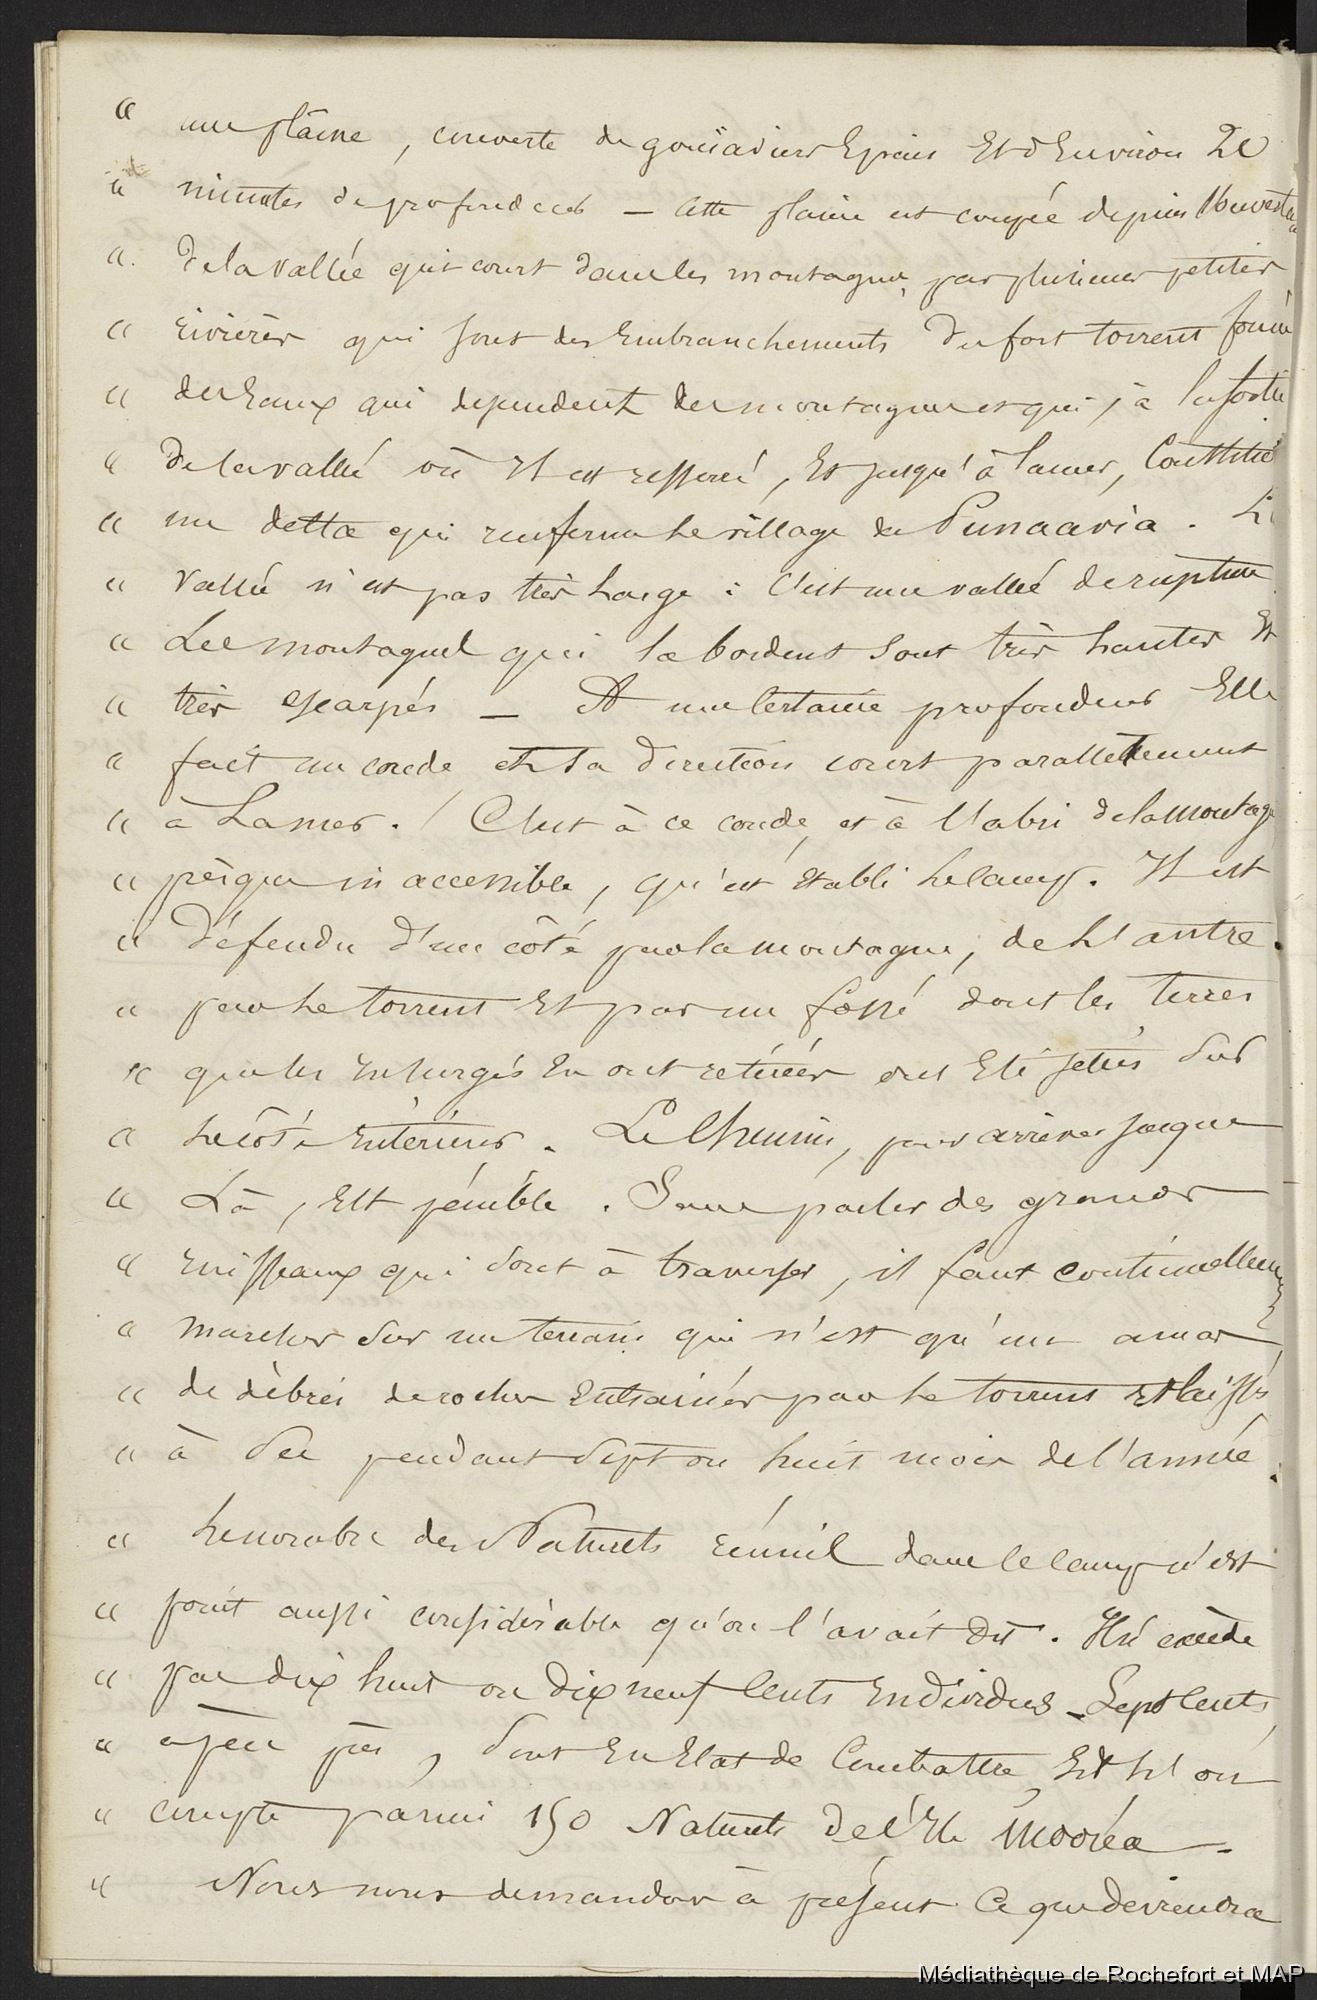 " une plaine, couverte de goüiaviers Epais Et d'Environ 20
" minutes de profondeur — Cette plaine est coupée depuis l'ouvertu
" De la Vallée qui court dans les montagnes, par plusieurs petites
" rivières qui sont des Embranchements Du fort torrent formé
" des Eaux qui dependent des montagnes et qui, à la sortie
" De la vallée où Il est resserré, Et jusqu'à la mer, Constitue
" un delta qui renferme le village de Punaavia. La
" Vallée n'est pas très large : C'est une vallée de rupture
" Les montagnes qui la bordent sont très hautes Et
" très escarpés — A une Certaine profondeur Elle
" fait un coude et sa Direction court parallellement
" à La mer. C'est à ce coude, et à l'abri de la montagn
" presque inaccessible, qu'est Etabli le camp. Il est
" Défendu d'un côté par la montagne, de l'autre.
" par le torrent Et par un fossé dont les terres
" que les Insurgés En ont retirées ont Eté jetées sur
" le côté Intérieur. Le Chemin, pour arriver jusque
" Là, Est pénible. Sans parler des grands
" ruisseaux qui sont à traverser, il faut continuellement
" marcher sur un terrain qui n'est qu'un amas
" de débris de roches Entrainés par le torrent Et laissés
" à sec pendant sept ou huit mois de l'année.
" Le nombre des Naturels réunis dans le camp n'est
" point aussi considérable qu'on l'avait dit. Il n'excède
" pas dix huit ou Dix neuf Cents Individus — Sept Cents,
" à peu près, sont En Etat de Combattre, Et l'on
" compte parmi 150 Naturels De l'Ile Mooréa —
" Nous nous demandons à présent Ce que deviendra
Médiathèque de Rochefort et MAP